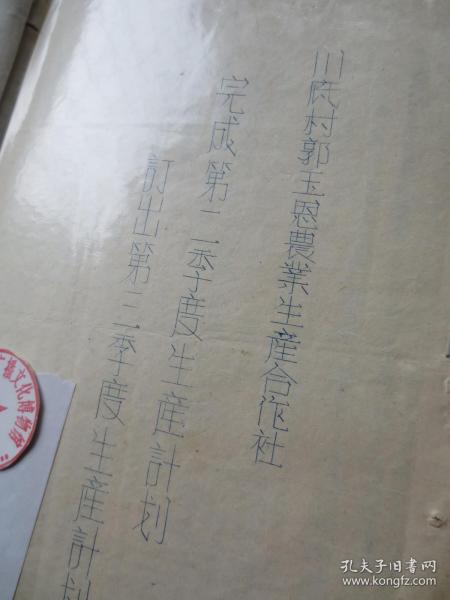 川底村郭玉恩農業生産合作社
完成第二季度生産計划
訂出第三季度生産計划
文化博物館
孔夫子旧书网
www.kongfz.com